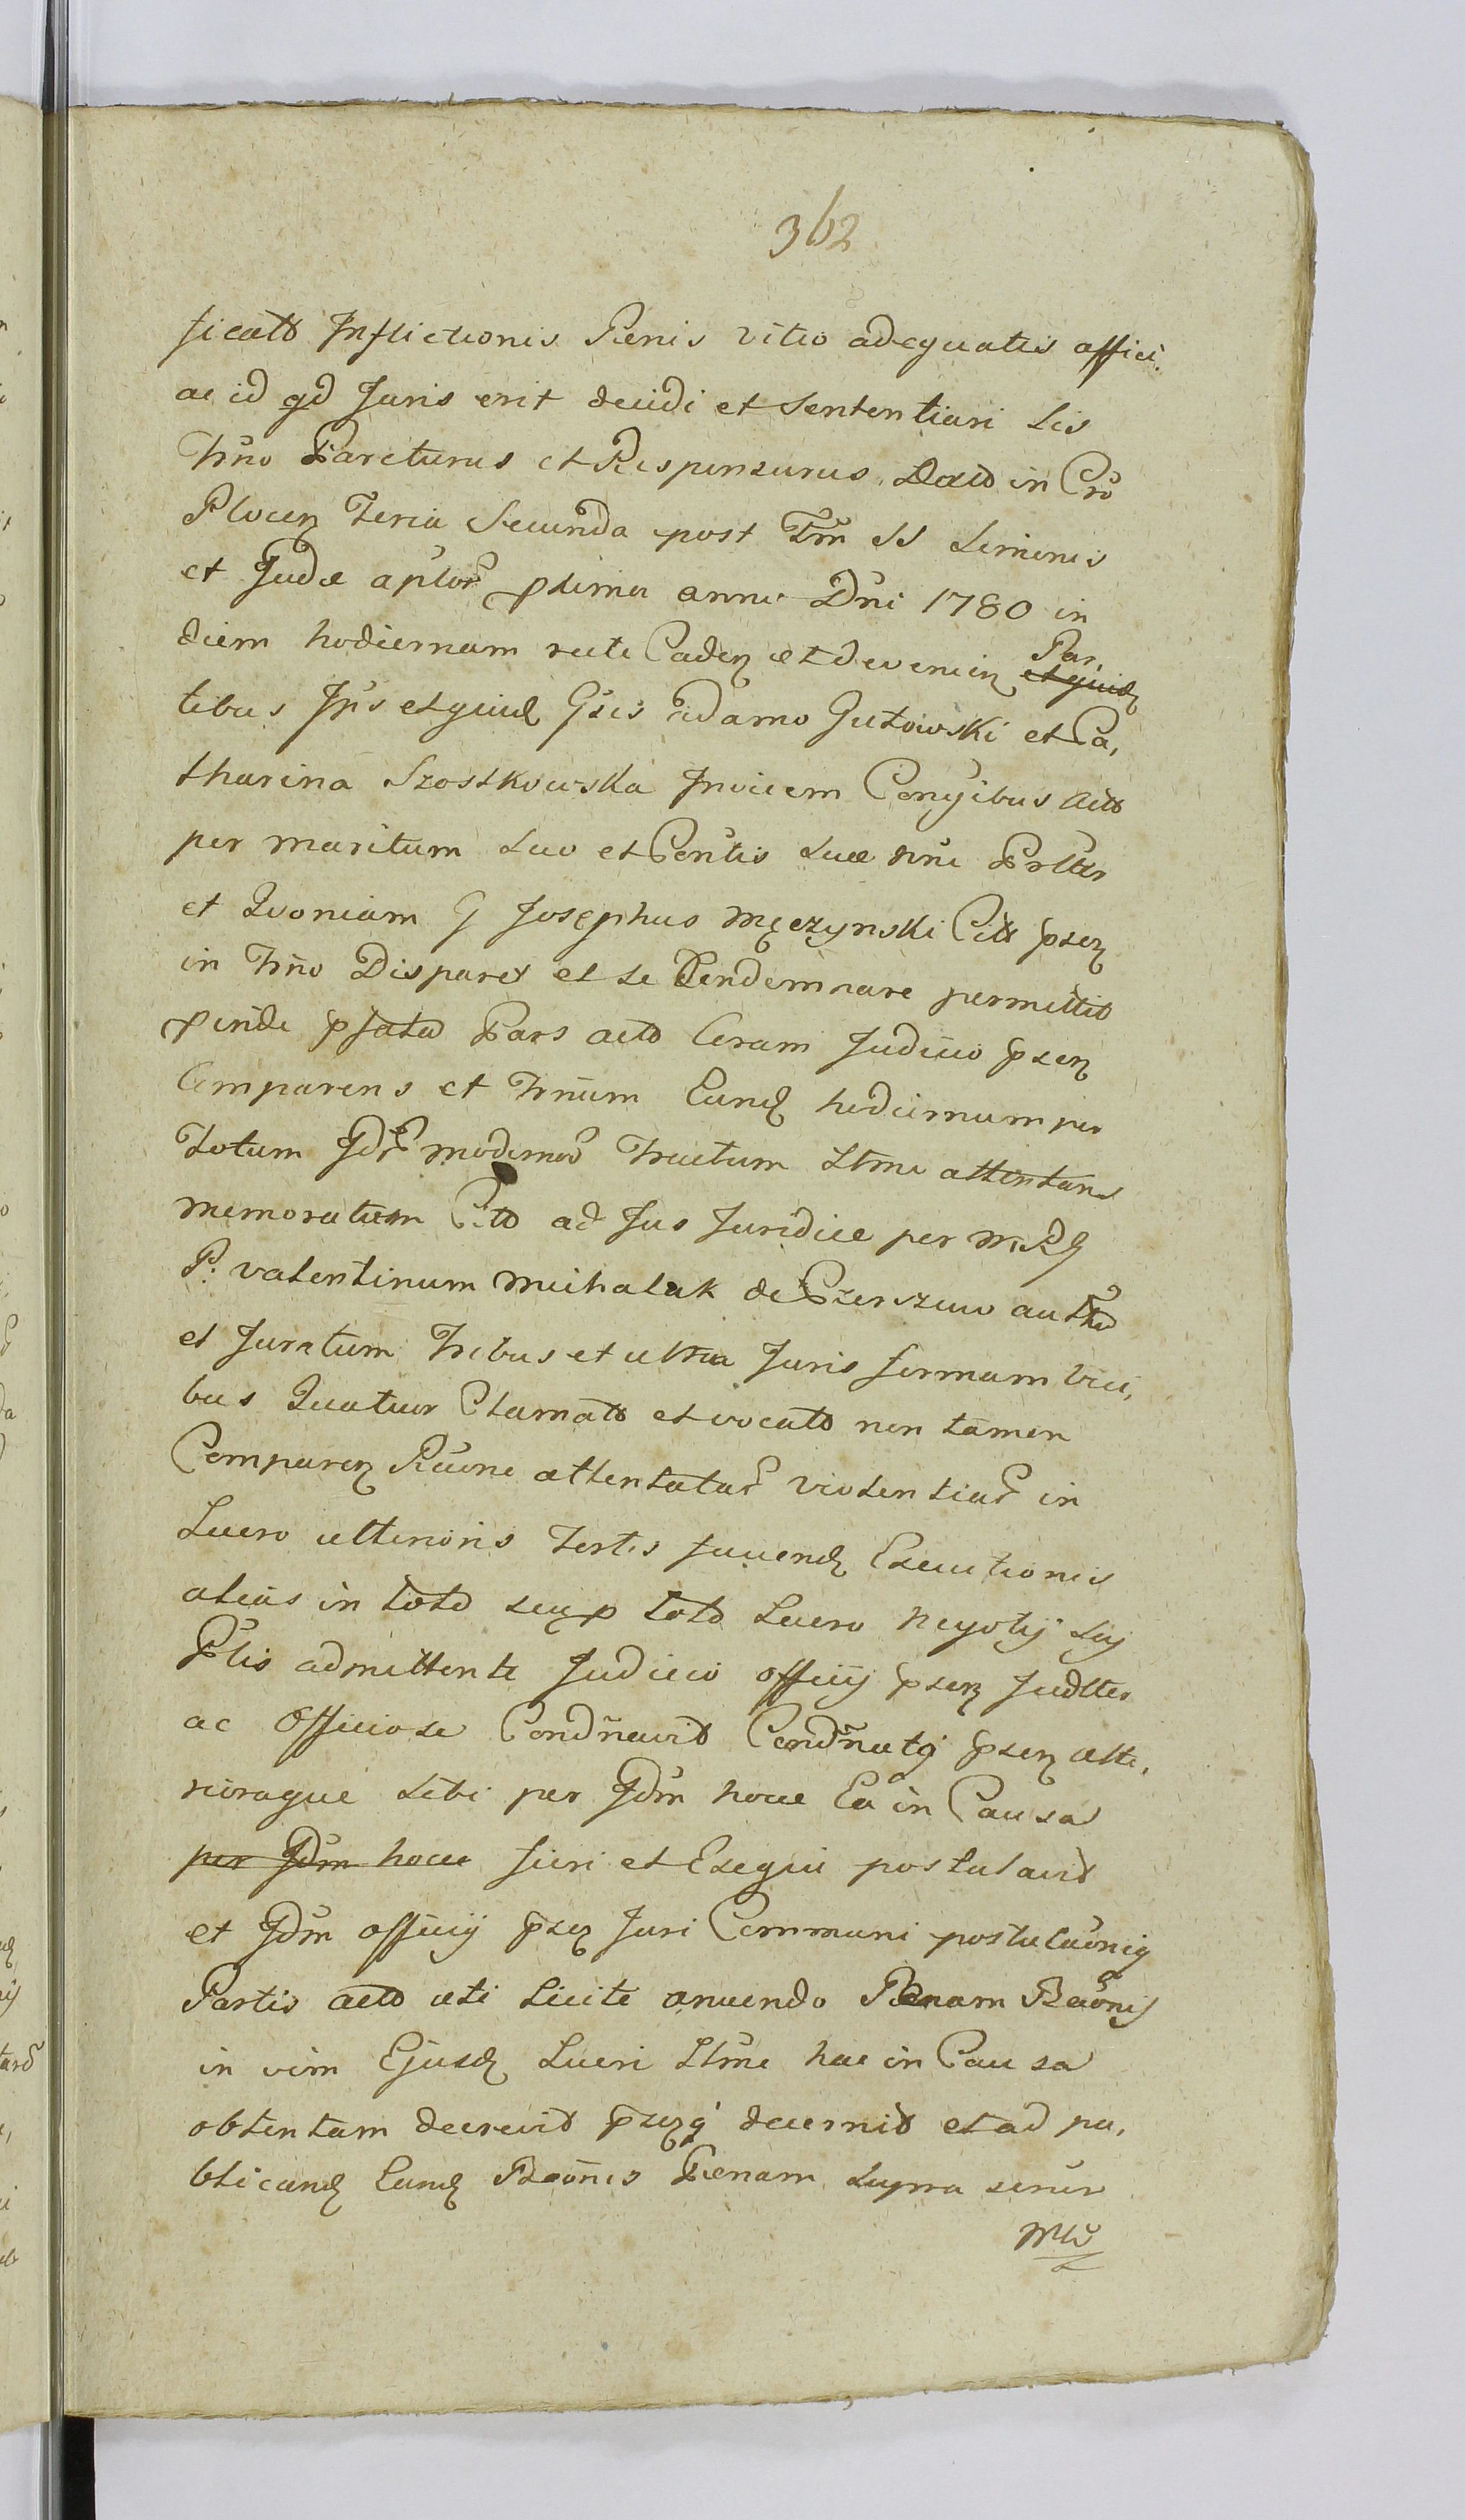 362
ficato Inflictionis Penis vitio adequatis affici.
ac id qd Juris erit decidi et Sententiari Lis
Trno Pariturus et Responsurus. Dato in Cro
Plocen Feria Secunda post Fm SS Simonis
et Judæ aplor pxima anni Dni 1780 in
diem hodiernam recte Caden et devenien Par,
et quid
tibus Jpis et quid Gsis Adamo Gutowski et Ca,
tharina Szostkowska Invicem Conjgibus Acto
per maritum Suo et Contis Suæ nne Prltr
et Quoniam G Josephus Męczynski Citt psen
in Trno Disparet et se Condemnare permittit
pinde pfata Pars acto Coram Judicio psen
Comparens et Trnum Eund hodiernum per
Totum Jdr modernor Tractum Ltme attentans
memoratum Cito ad Jus Juridice per M. R G
P: valentinum Michalak de auth
et Juratum Tribus et ultra Juris formam Vici,
bus Quatuor Clamato et vocato non tamen
Comparen Raone attentatar violentiar in
Lucro ulterioris fortis Juvend Executionis
alias in toto seu p toto Lucro Negotij Sui
Plis admittente Judicio Officij psen Judltr
ac Officiose Condnavit Condnatq psen Ulte,
rioraque Sibi per Jdm hocce Ea in Causa
per Jdm hocce fieri et Exequi postulavit
et Jdm Officij psen Juri Communi postulaonig
Partis acto uti Licite anuendo Pænam Baonis
in vim Ejusd Lucri Ltme hac in Causa
obtentam decrevit psenq decernit et ad pu,
blicand Eand Baonis Pænam Supra
Mto